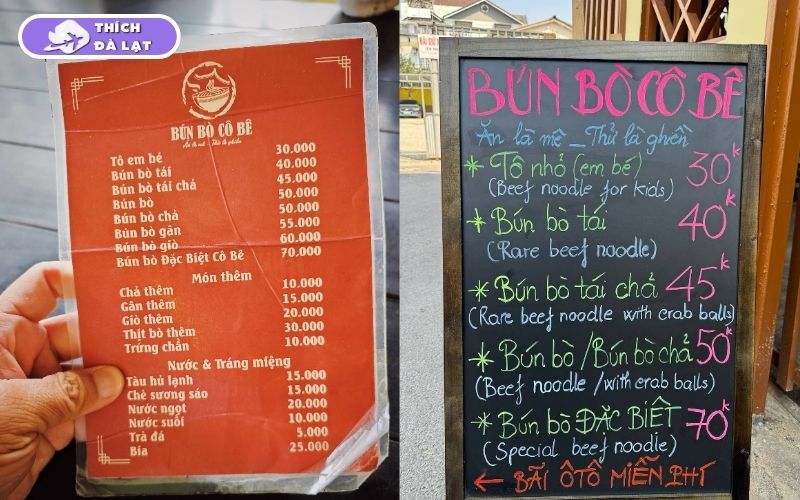 THÍCH
ĐÀ LẠT
BÚN BÒ CÔ BÊ
Ăn là mê - Thử là ghiền
Tô em bé 30.000
Bún bò tái 40.000
Bún bò tái chả 45.000
Bún bò 50.000
Bún bò chả 50.000
Bún bò gân 55.000
Bún bò giò 60.000
Bún bò Đặc Biệt Cô Bê 70.000
Món thêm
Chả thêm 10.000
Gân thêm 15.000
Giò thêm 20.000
Thịt bò thêm 30.000
Trứng chần 10.000
Nước & Tráng miệng
Tàu hủ lạnh 15.000
Chè sương sáo 15.000
Nước ngọt 20.000
Nước suối 10.000
Trà đá 5.000
Bia 25.000
BÚN BÒ CÔ BÊ
Ăn là mê _ Thử là ghiền
* Tô nhỏ (em bé) 30K
(Beef noodle for kids)
* Bún bò tái 40K
(Rare beef noodle)
* Bún bò tái chả 45K
(Rare beef noodle with crab balls)
* Bún bò / Bún bò chả 50K
(Beef noodle / with crab balls)
* Bún bò ĐẶC BIỆT 70K
(Special beef noodle)
← BÃI ÔTÔ MIỄN PHÍ